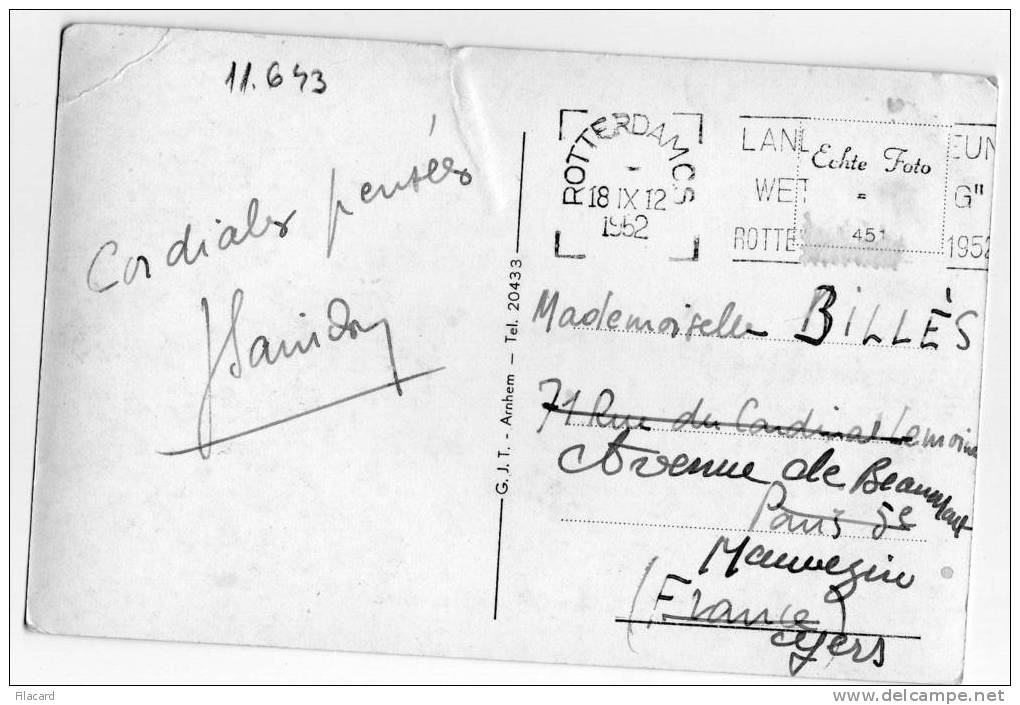 11.643
Cordiales pensées
G.J.T. - Arnhem — Tel. 20433
ROTTERDAM CS
18 IX 12
1952
LANL EUN
WET G"
ROTTE 1952
Echte Foto
=
451
Mademoiselle BILLÈS
71 Rue du Cardinal Lemoine
Avenue de Beaumont
Paris 5e
Mauvezin
(France)
Gers
Filacard
www.delcampe.net